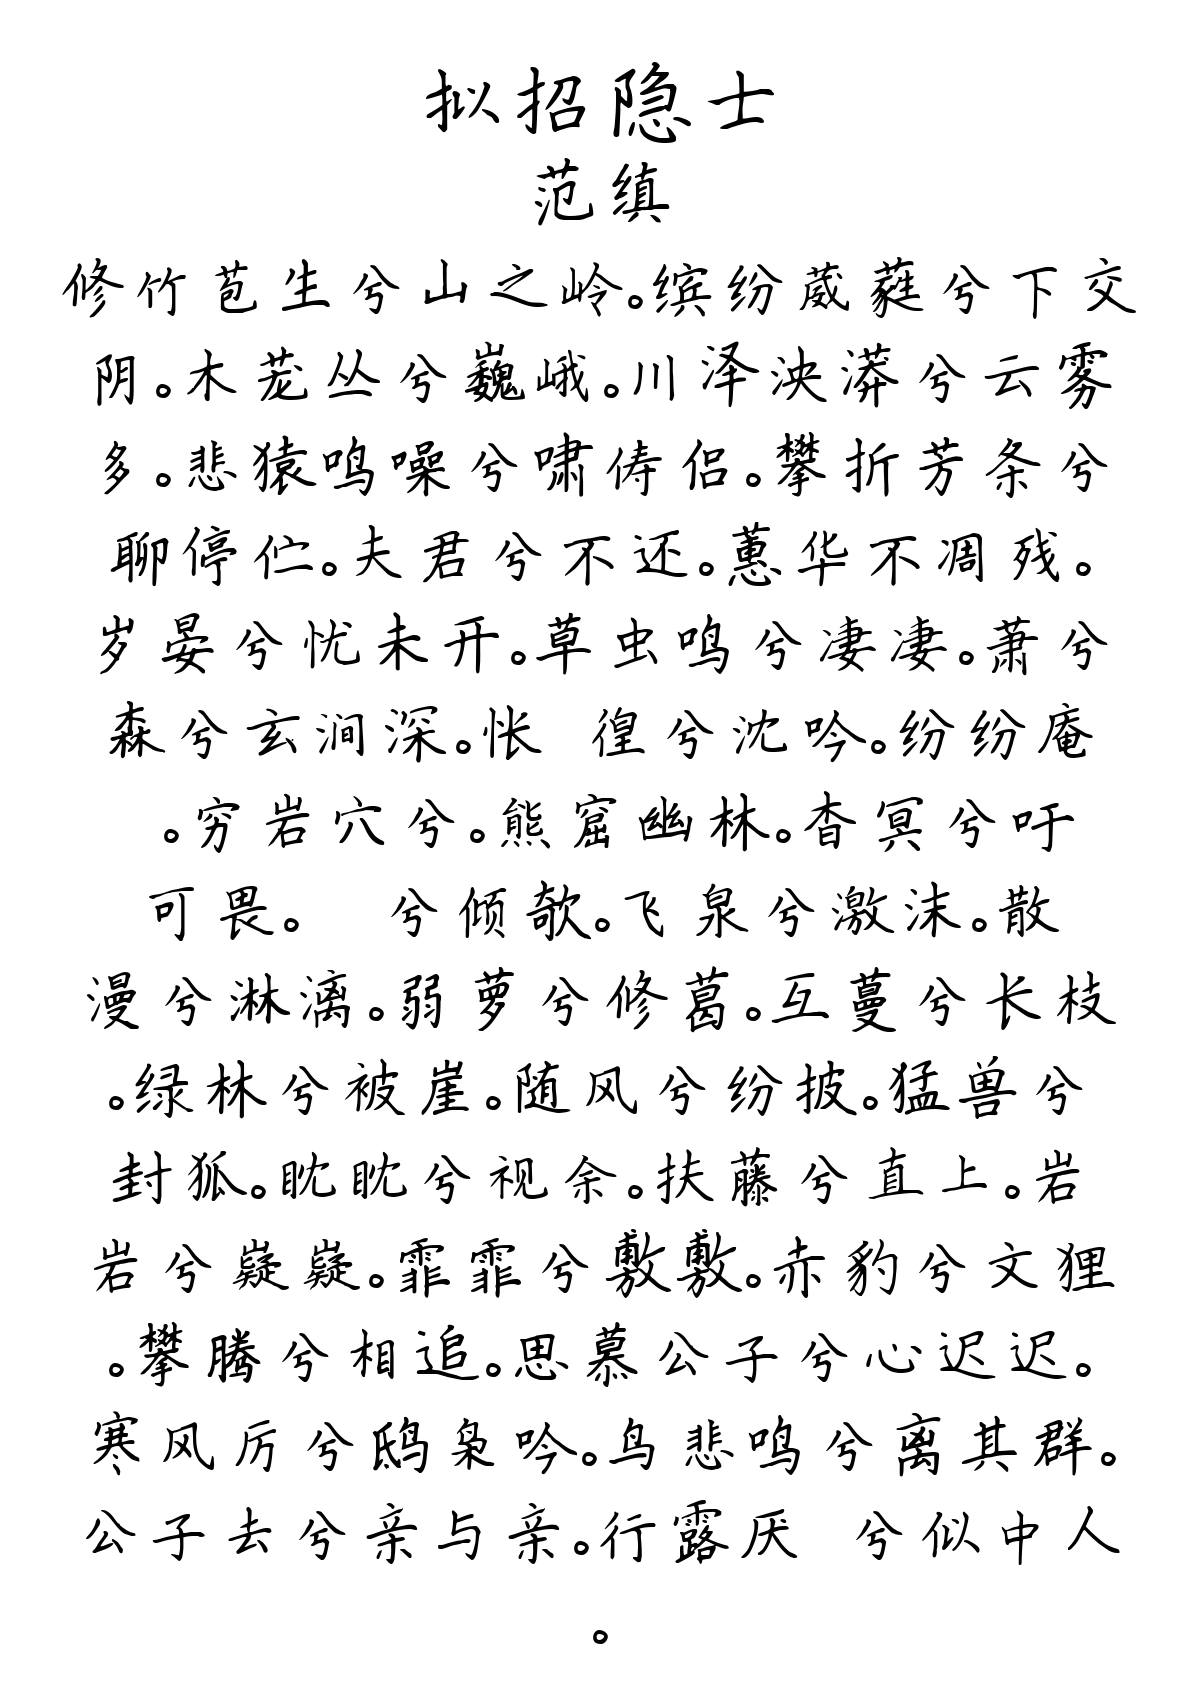 拟招隐士
范缜
修竹苞生兮山之岭。缤纷葳蕤兮下交
阴。木茏丛兮巍峨。川泽泱漭兮云雾
多。悲猿鸣噪兮啸俦侣。攀折芳条兮
聊停伫。夫君兮不还。蕙华不凋残。
岁晏兮忧未开。草虫鸣兮凄凄。萧兮
森兮玄涧深。怅 徨兮沈吟。纷纷庵
。穷岩穴兮。熊窟幽林。杳冥兮吁
可畏。 兮倾欹。飞泉兮激沫。散
漫兮淋漓。弱萝兮修葛。互蔓兮长枝
。绿林兮被崖。随风兮纷披。猛兽兮
封狐。眈眈兮视余。扶藤兮直上。岩
岩兮嶷嶷。霏霏兮敷敷。赤豹兮文狸
。攀腾兮相追。思慕公子兮心迟迟。
寒风厉兮鸱枭吟。鸟悲鸣兮离其群。
公子去兮亲与亲。行露厌 兮似中人
。